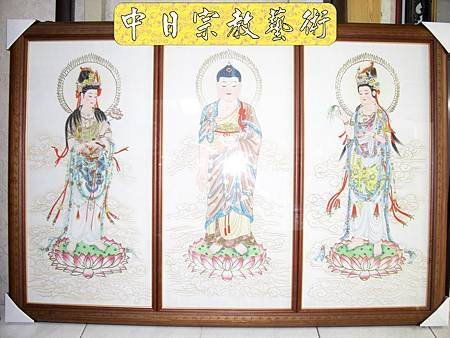 中日宗教藝術